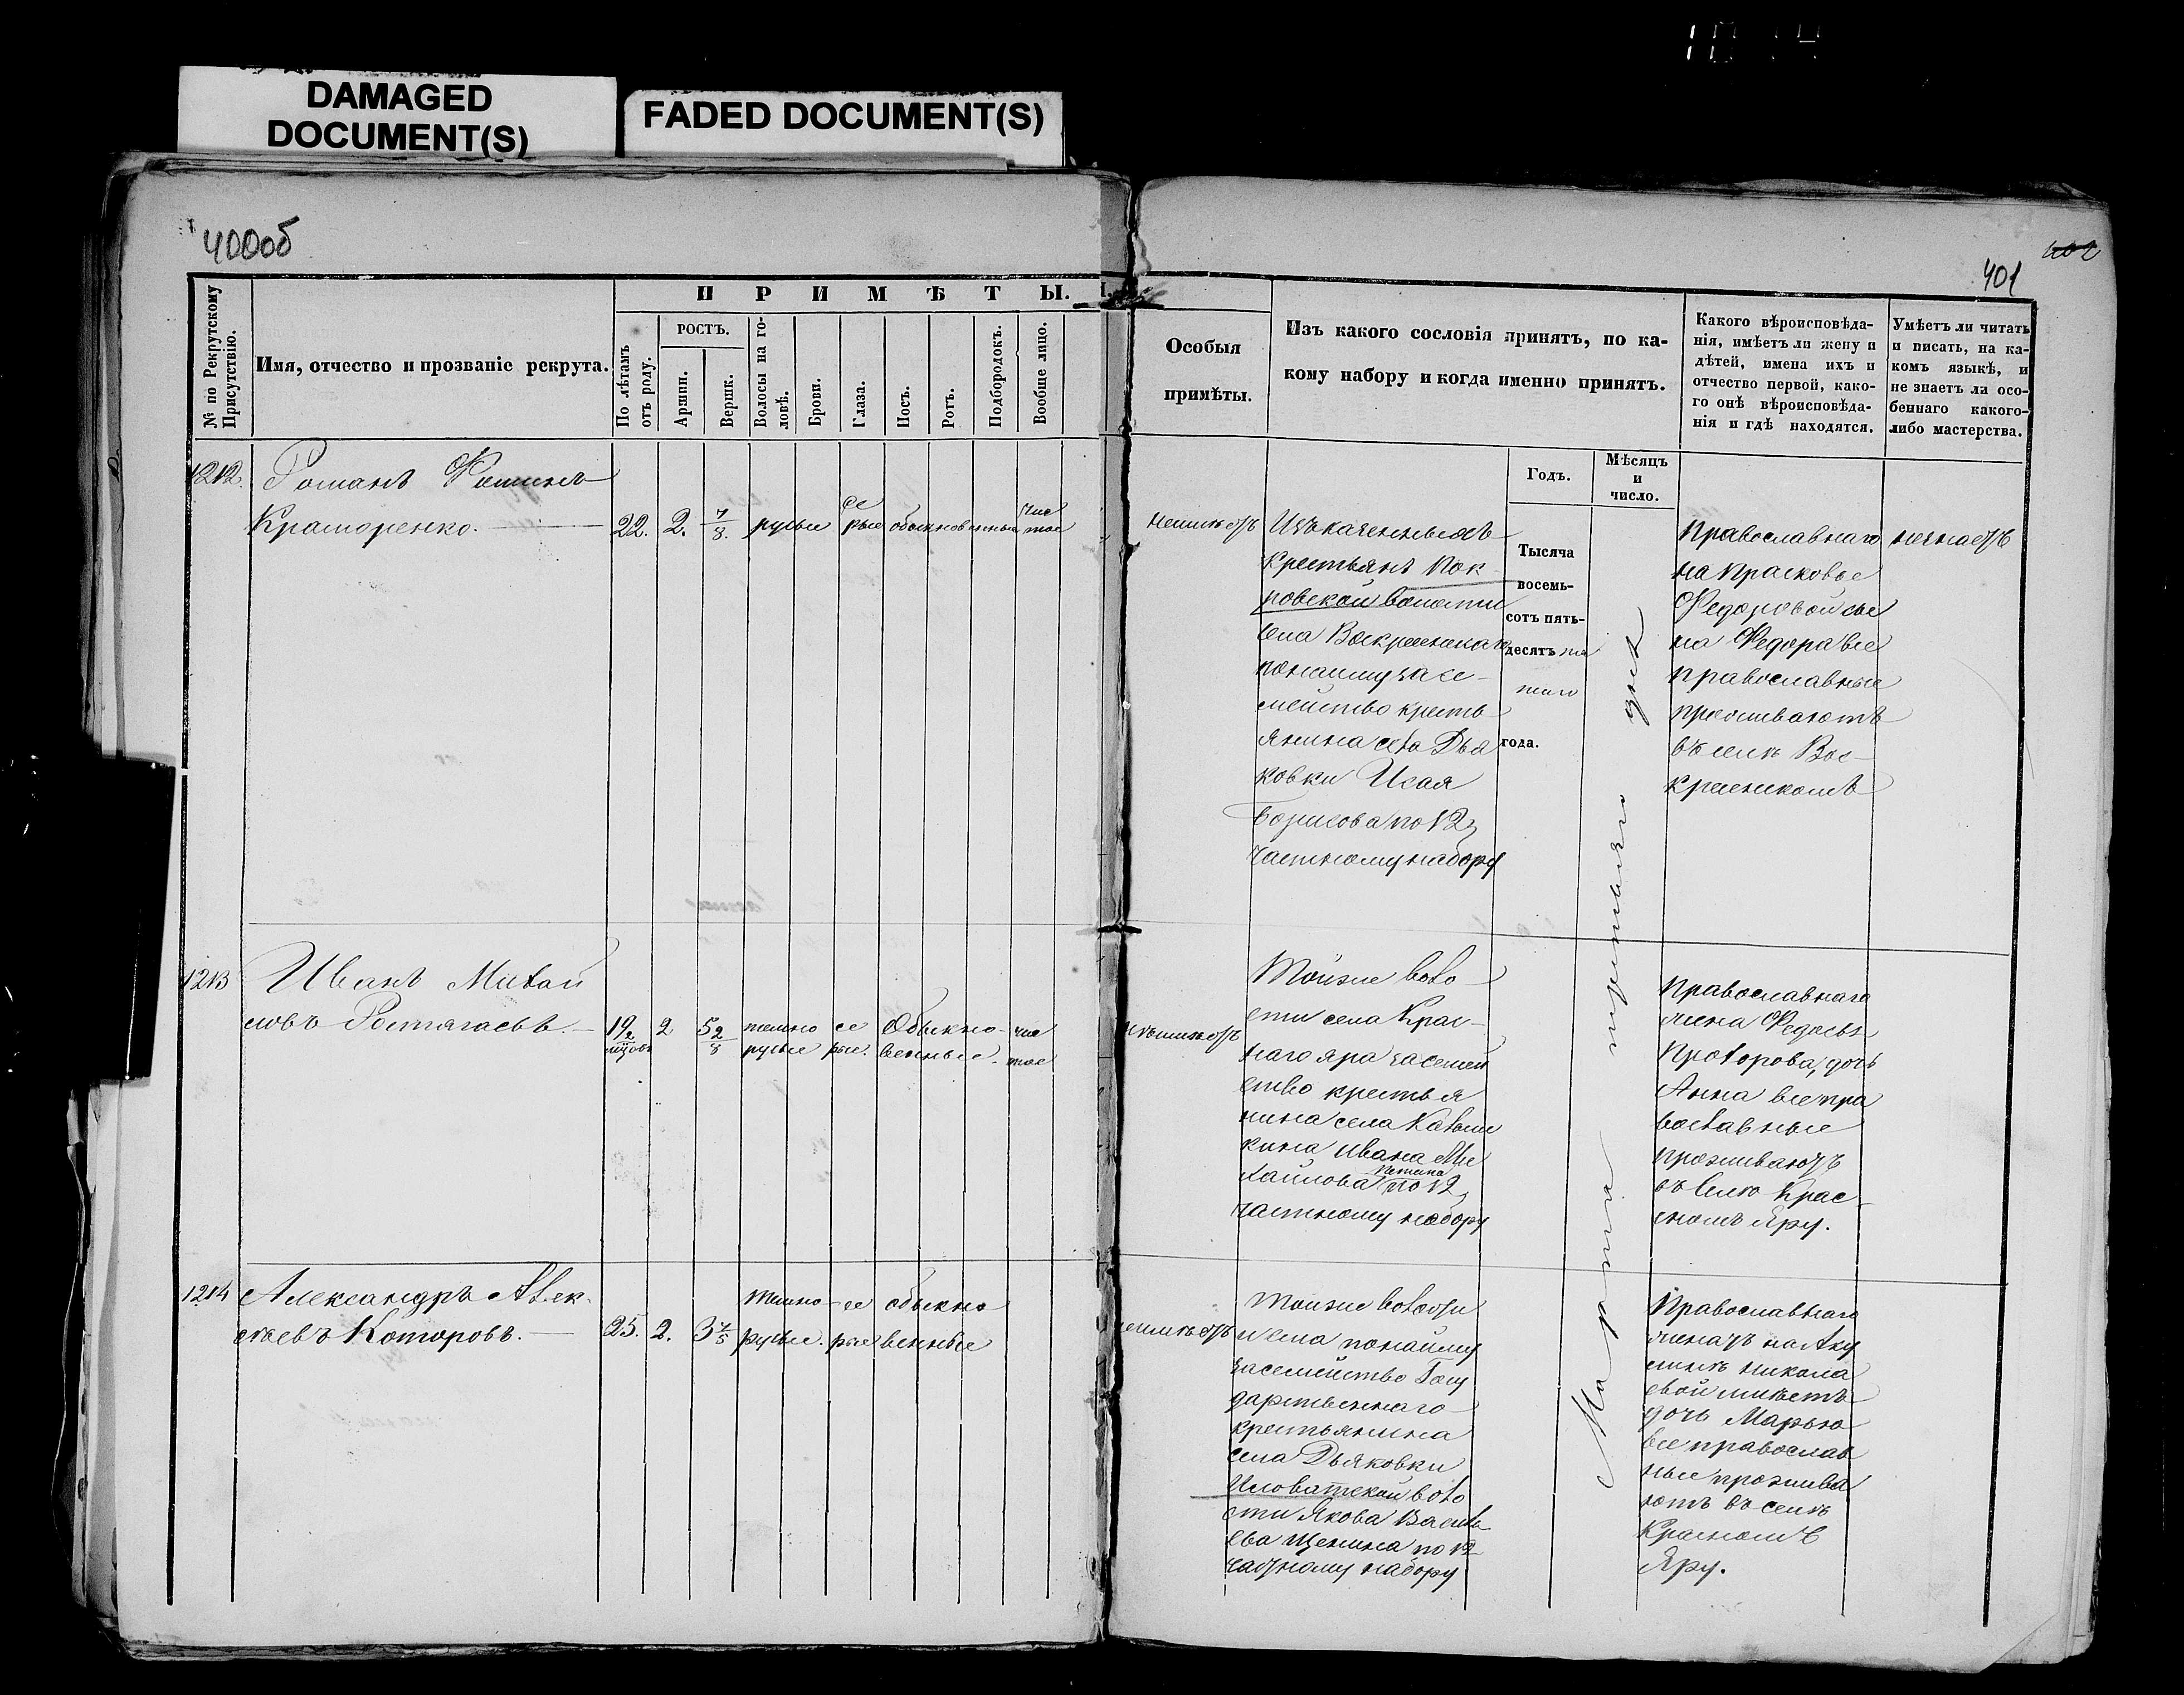 DAMAGED
DOCUMENT(S)
FADED DOCUMENT(S)
400об
402
401
№ по Рекрутскому
Присутствію.
Имя, отчество и прозваніе рекрута.
ПРИМѢТЫ.
По лѣтамъ
отъ роду.
РОСТЪ.
Аршин.
Вершк.
Волосы на го-
ловѣ.
Брови.
Глаза.
Носъ.
Ротъ.
Подбородокъ.
Вообще лицо.
Особыя
примѣты.
Изъ какого сословія принятъ, по ка-
кому набору и когда именно принятъ.
Какого вѣроисповѣда-
нія, имѣетъ ли жену и
дѣтей, имена ихъ и
отчество первой, како-
го онѣ вѣроисповѣда-
нія и гдѣ находятся.
Умѣетъ ли читать
и писать, на ка-
комъ языкѣ, и
не знаетъ ли осо-
беннаго какого-
либо мастерства.
Годъ.
Мѣсяцъ
и
число.
Тысяча
восемь-
сотъ пять-
десятъ пя
таго
года.
Марта третьяго дня
1212.
Романъ Фоминъ
Краморенко.
22. 2. 7/8. русые се
рые обыкновенный чис
тое
неимѣетъ
Изъ казенныхъ
крестьянъ Пок
ровской волости
села Воскресенскаго
понайму за се-
мейство кресть
янина села Дья
ковки Исая
Борисова по 12
частному набору
Православнаго
на Прасковье
Федоровой сы
на Федора все
православные
проживаютъ
въ селѣ Вос-
кресенскомъ
незнаетъ
1213
Иванъ Михай
ловъ Ростягаевъ.
19 2/12
мцовъ
2
5 2/8
темно
русые
се
рые.
Обыкно-
венные.
чис
тое
неимѣетъ
Тойже воло
сти села Крас-
наго яра засемей
ство крестья
нина села
Ивана Ми
хайлова по 12
частному набору
Православнаго
жена Федосья
Прохорова, дочь
Анна все пра
вославные
проживаютъ
въ селѣ Крас-
номъ Яру.
1214
Александръ Алек
сѣевъ Которовъ.
25. 2.
темно
русые.
се
рые
обыкно
венные
неимѣетъ
Тойже волости
и села понайму
засемейство Госу
дарственнаго
крестьянина
села Дьяковки
Иловатской воло
сти Якова Василь
ева Щенина по 12
частному набору
Православнаго
женатъ на Аку
линѣ Никола
евой имѣетъ
дочь Марью
все православ
ные прожива
ютъ въ селѣ
Красномъ
Яру.